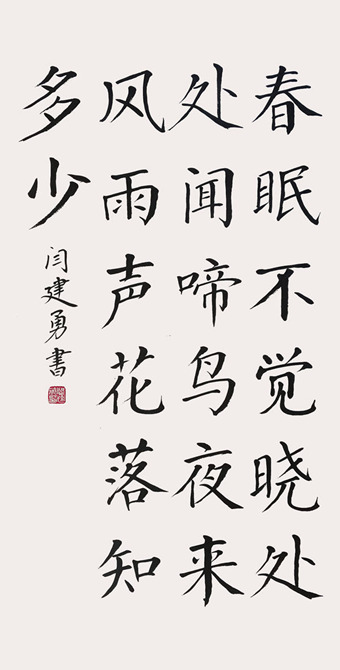 春眠不觉晓处
处闻啼鸟夜来
风雨声花落知
多少
闫建勇書